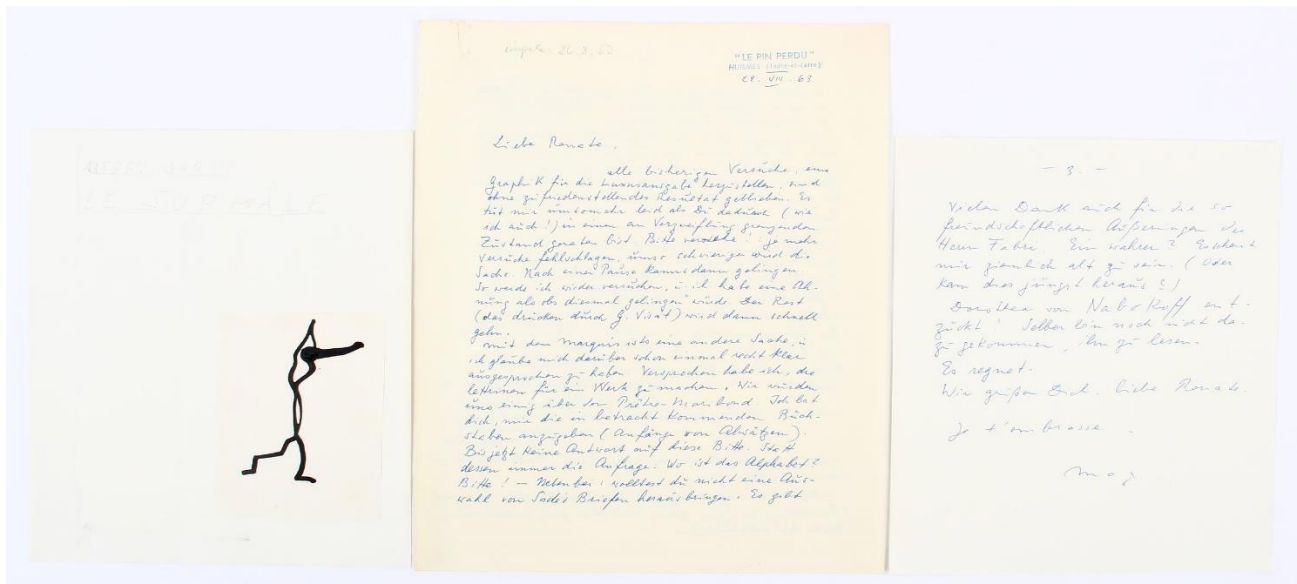 ALFRED JARRY
LE SURMÂLE
26. 8. 63
"LE PIN PERDU"
HUISMES (INDRE-ET-LOIRE)
22. VIII. 63
Liebe Renate,
alle bisherigen Versuche, eine
Graphik für die Luxusausgabe herzustellen, sind
ohne zufriedenstellendes Resultat geblieben. Es
tut mir umsomehr leid als Du dadurch (wie
ich auch!) in einen an Verzweiflung grenzenden
Zustand geraten bist. Bitte verstehe: je mehr
Versuche fehlschlagen, umso schwieriger wird die
Sache. Nach einer Pause kanns dann gelingen.
So werde ich wieder versuchen, u. ich habe eine Ah-
nung als obs diesmal gelingen würde. Der Rest
(das drücken durch G. Visat) wird dann schnell
gehn.
Mit dem Marquis ists eine andere Sache, u.
ich glaube mich darüber schon einmal recht klar
ausgesprochen zu haben. Versprochen habe ich, die
lettrinen für ein Werk zu machen. Wir wurden
uns einig über den Prêtre-Moribond. Ich bat
dich, mir die in betracht kommenden Buch-
staben anzugeben (Anfänge von Absätzen).
Bis jetzt keine Antwort auf diese Bitte. Statt
dessen immer die Anfrage: Wo ist das Alphabet?
Bitte! — Nebenbei: wolltest du nicht eine Aus-
wahl von Sade's Briefen herausbringen. Es gibt
- 3. -
Vielen Dank auch für die so
freundschaftlichen Äußerungen des
Herrn Fabri. Ein wahrer? Erscheint
mir ziemlich alt zu sein. (Oder
kam dies jüngst heraus?)
Dorothea von Nabokoff ent-
zückt! Selber bin noch nicht da-
zu gekommen, ihn zu lesen.
Es regnet.
Wir grüßen Dich, liebe Renate.
Je t'embrasse.
max